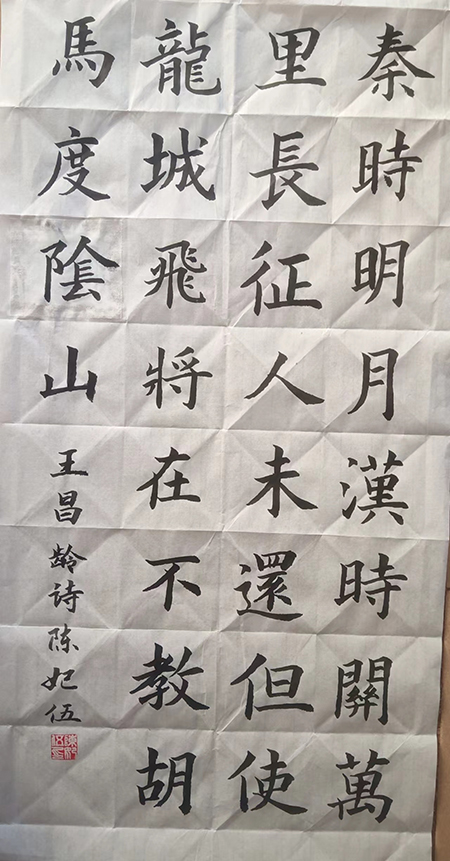 秦時明月漢時關萬
里長征人未還但使
龍城飛將在不教胡
馬度陰山
王昌龄诗陈妃伍